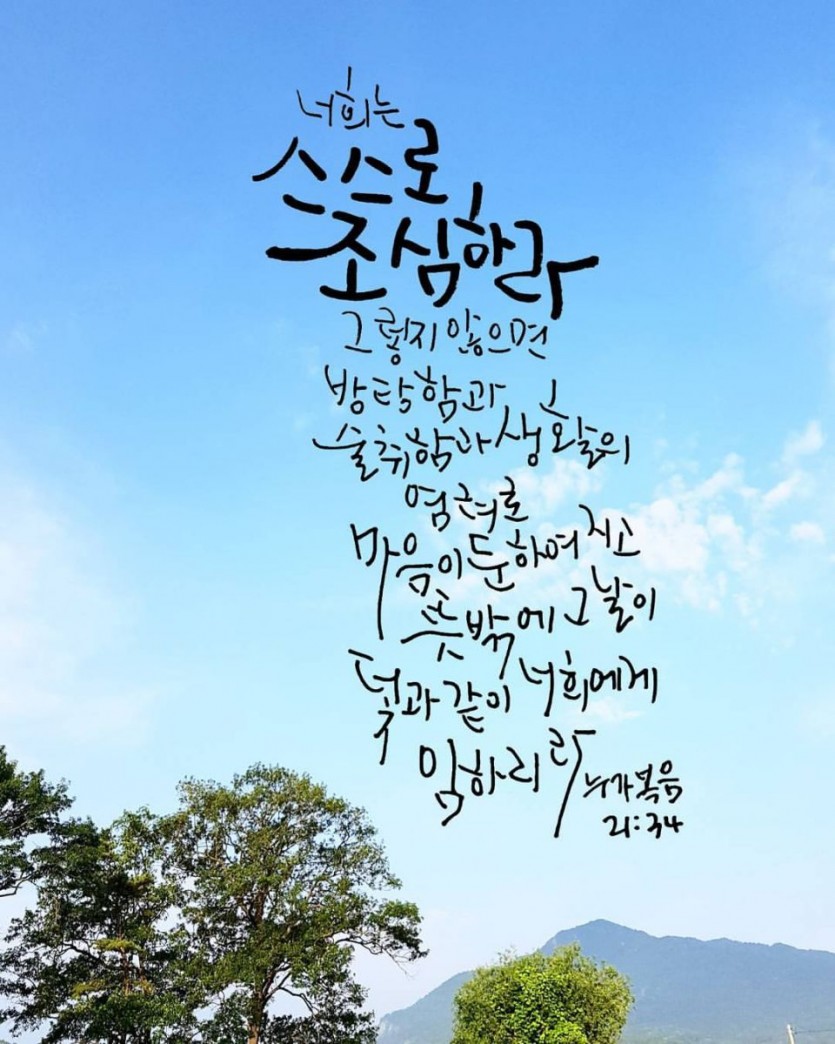 너희는
스스로
조심하라
그렇지 않으면
방탕함과
술취함과 생활의
염려로
마음이 둔하여지고
뜻밖에 그 날이
덫과 같이 너희에게
임하리라
누가복음
21:34